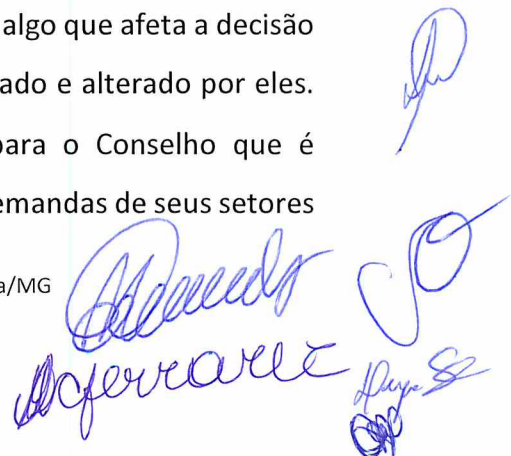 algo que afeta a decisão
ado e alterado por eles.
para o Conselho que é
emandas de seus setores
a/MG